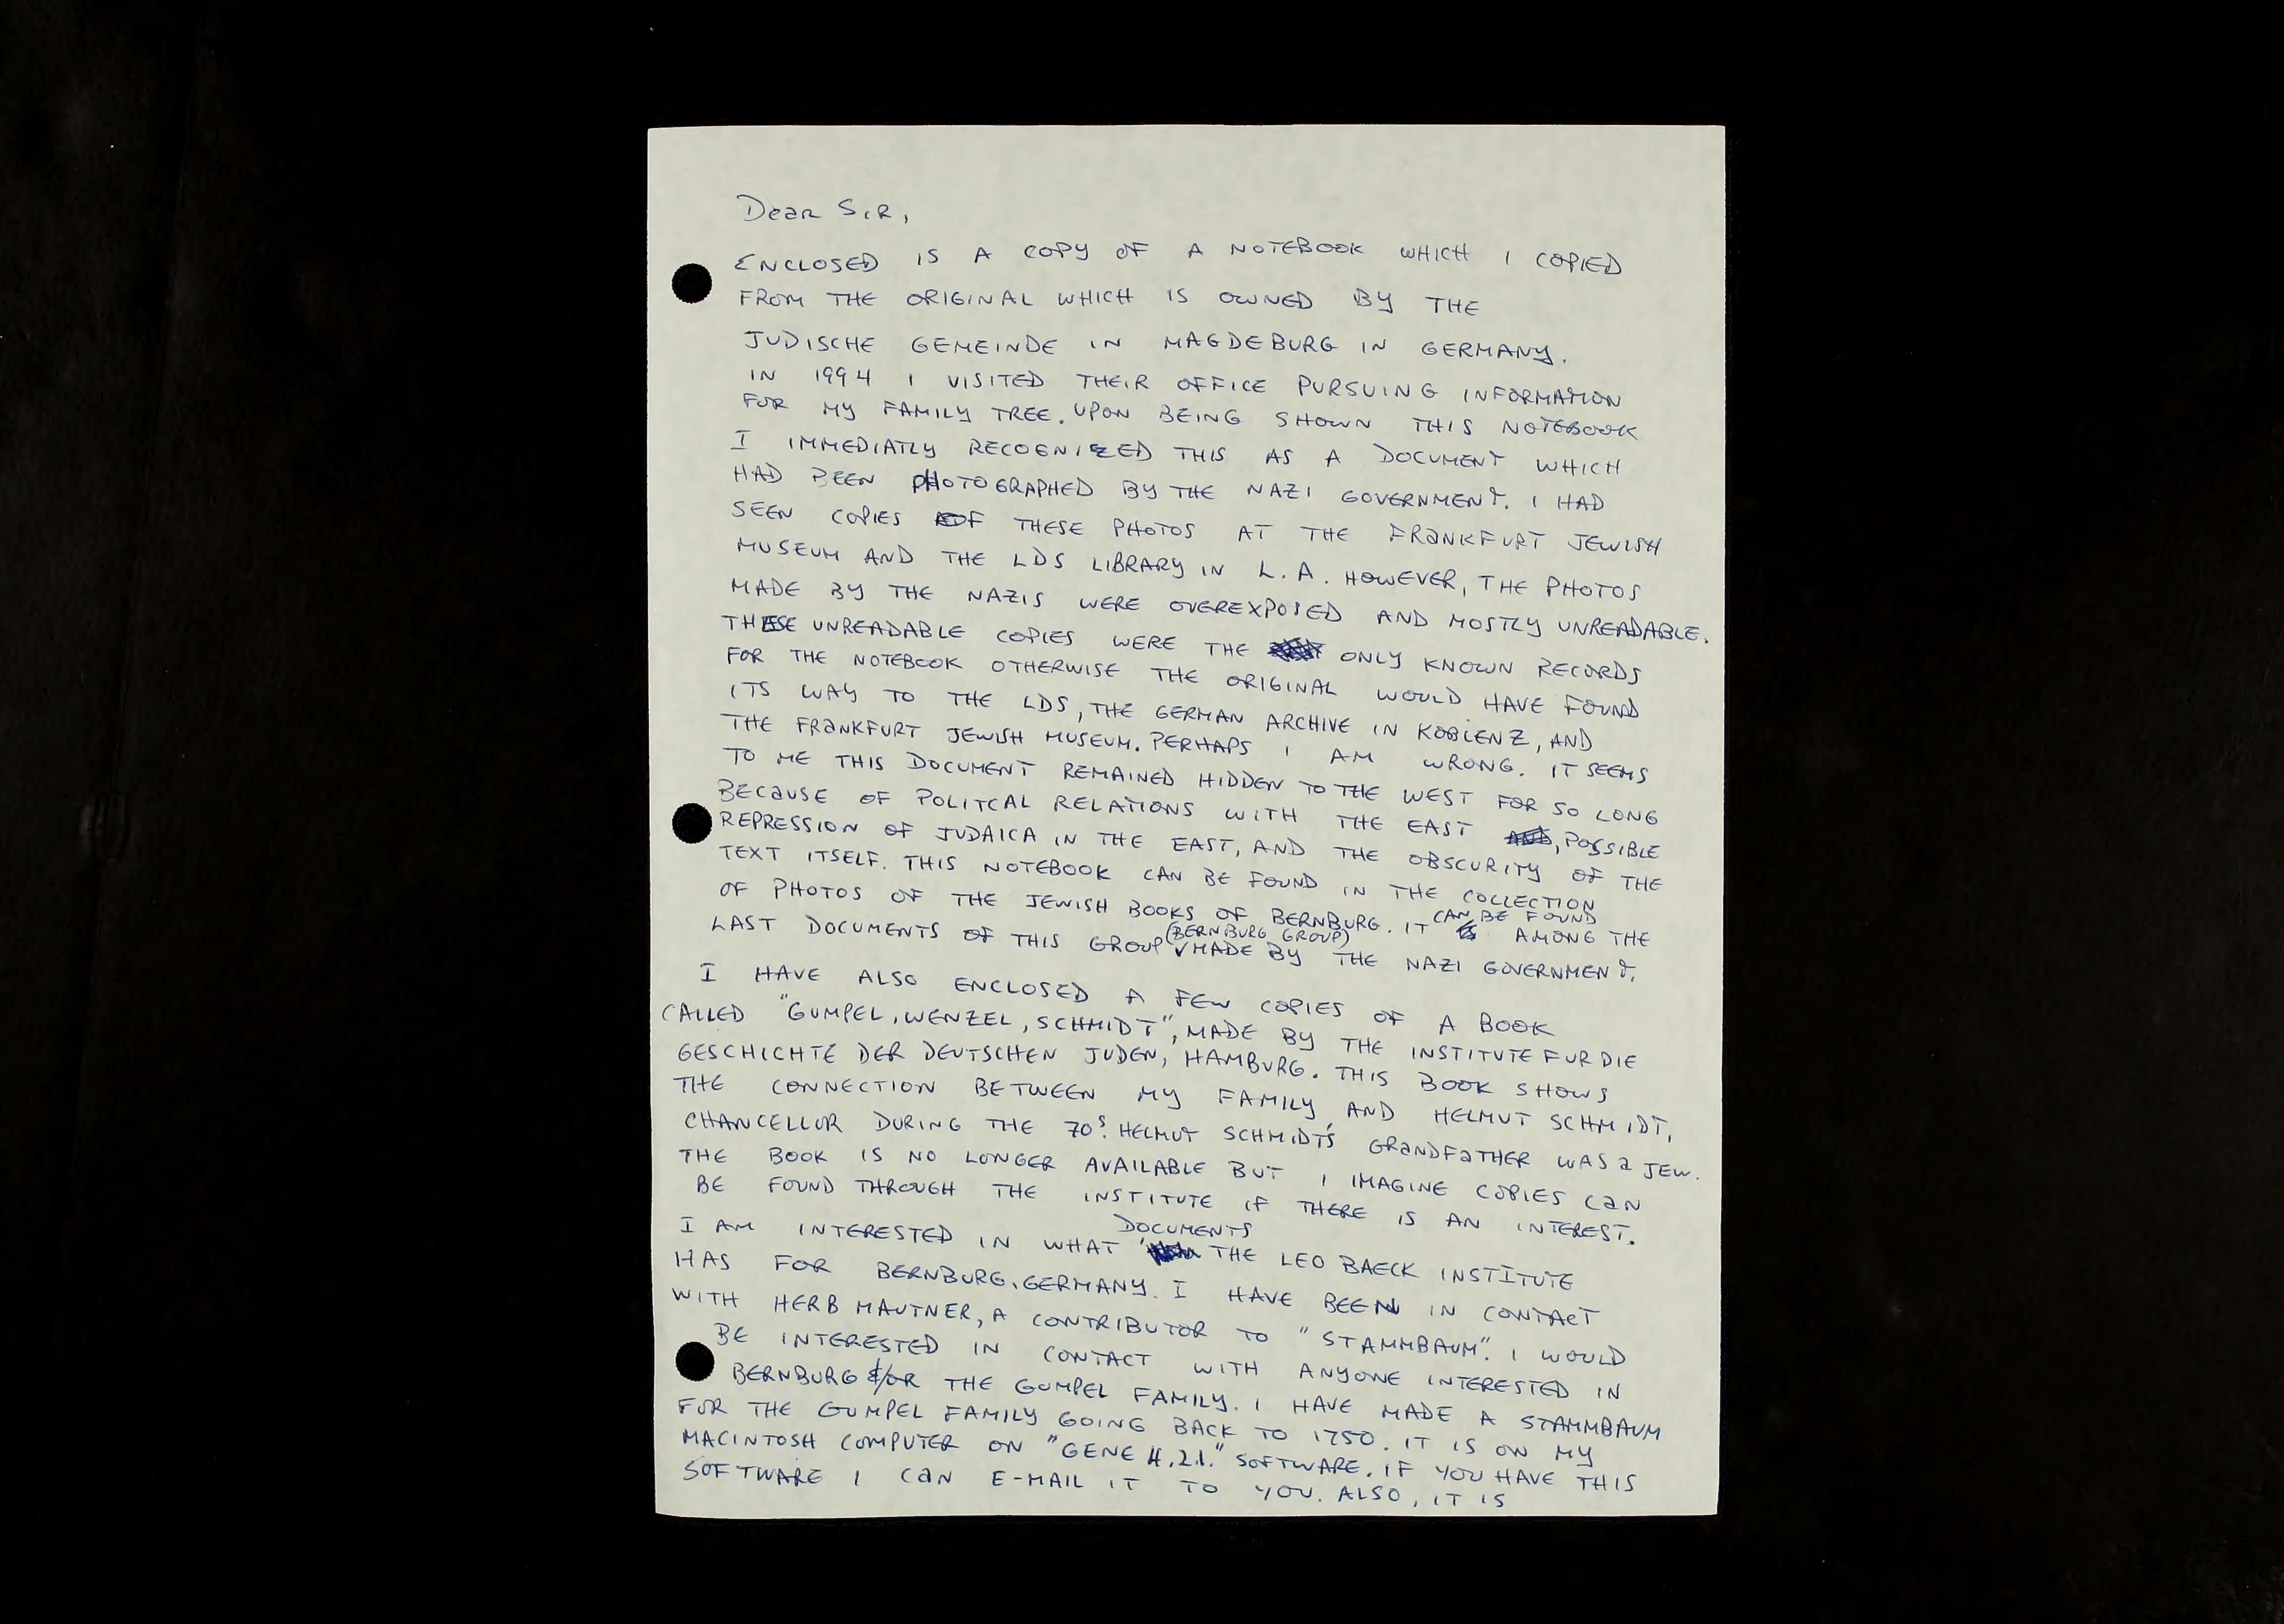 Dear Sir,
ENCLOSED IS A COPY OF A NOTEBOOK WHICH I COPIED
FROM THE ORIGINAL WHICH IS OWNED BY THE
JUDISCHE GEMEINDE IN MAGDEBURG IN GERMANY.
IN 1994 I VISITED THEIR OFFICE PURSUING INFORMATION
FOR MY FAMILY TREE. UPON BEING SHOWN THIS NOTEBOOK
I IMMEDIATLY RECOGNIZED THIS AS A DOCUMENT WHICH
HAD BEEN PHOTOGRAPHED BY THE NAZI GOVERNMENT. I HAD
SEEN COPIES OF THESE PHOTOS AT THE FRANKFURT JEWISH
MUSEUM AND THE LDS LIBRARY IN L.A. HOWEVER, THE PHOTOS
MADE BY THE NAZIS WERE OVEREXPOSED AND MOSTLY UNREADABLE.
THESE UNREADABLE COPIES WERE THE ONLY KNOWN RECORDS
FOR THE NOTEBOOK OTHERWISE THE ORIGINAL WOULD HAVE FOUND
ITS WAY TO THE LDS, THE GERMAN ARCHIVE IN KOBLENZ, AND
THE FRANKFURT JEWISH MUSEUM. PERHAPS I AM WRONG. IT SEEMS
TO ME THIS DOCUMENT REMAINED HIDDEN TO THE WEST FOR SO LONG
BECAUSE OF POLITCAL RELATIONS WITH THE EAST, POSSIBLE
REPRESSION OF JUDAICA IN THE EAST, AND THE OBSCURITY OF THE
TEXT ITSELF. THIS NOTEBOOK CAN BE FOUND IN THE COLLECTION
OF PHOTOS OF THE JEWISH BOOKS OF BERNBURG. IT CAN BE FOUND AMONG THE
LAST DOCUMENTS OF THIS GROUP (BERNBURG GROUP) MADE BY THE NAZI GOVERNMENT.
I HAVE ALSO ENCLOSED A FEW COPIES OF A BOOK
CALLED "GUMPEL, WENZEL, SCHMIDT", MADE BY THE INSTITUTE FUR DIE
GESCHICHTE DER DEUTSCHEN JUDEN, HAMBURG. THIS BOOK SHOWS
THE CONNECTION BETWEEN MY FAMILY, AND HELMUT SCHMIDT,
CHANCELLOR DURING THE 70s. HELMUT SCHMIDT'S GRANDFATHER WAS a JEW.
THE BOOK IS NO LONGER AVAILABLE BUT I IMAGINE COPIES CAN
BE FOUND THROUGH THE INSTITUTE IF THERE IS AN INTEREST.
I AM INTERESTED IN WHAT DOCUMENTS THE LEO BAECK INSTITUTE
HAS FOR BERNBURG, GERMANY. I HAVE BEEN IN CONTACT
WITH HERB MAUTNER, A CONTRIBUTOR TO "STAMMBAUM". I WOULD
BE INTERESTED IN CONTACT WITH ANYONE INTERESTED IN
BERNBURG &/OR THE GUMPEL FAMILY. I HAVE MADE A STAMMBAUM
FOR THE GUMPEL FAMILY GOING BACK TO 1750. IT IS ON MY
MACINTOSH COMPUTER ON "GENE 4.2.1." SOFTWARE. IF YOU HAVE THIS
SOFTWARE I CAN E-MAIL IT TO YOU. ALSO, IT IS